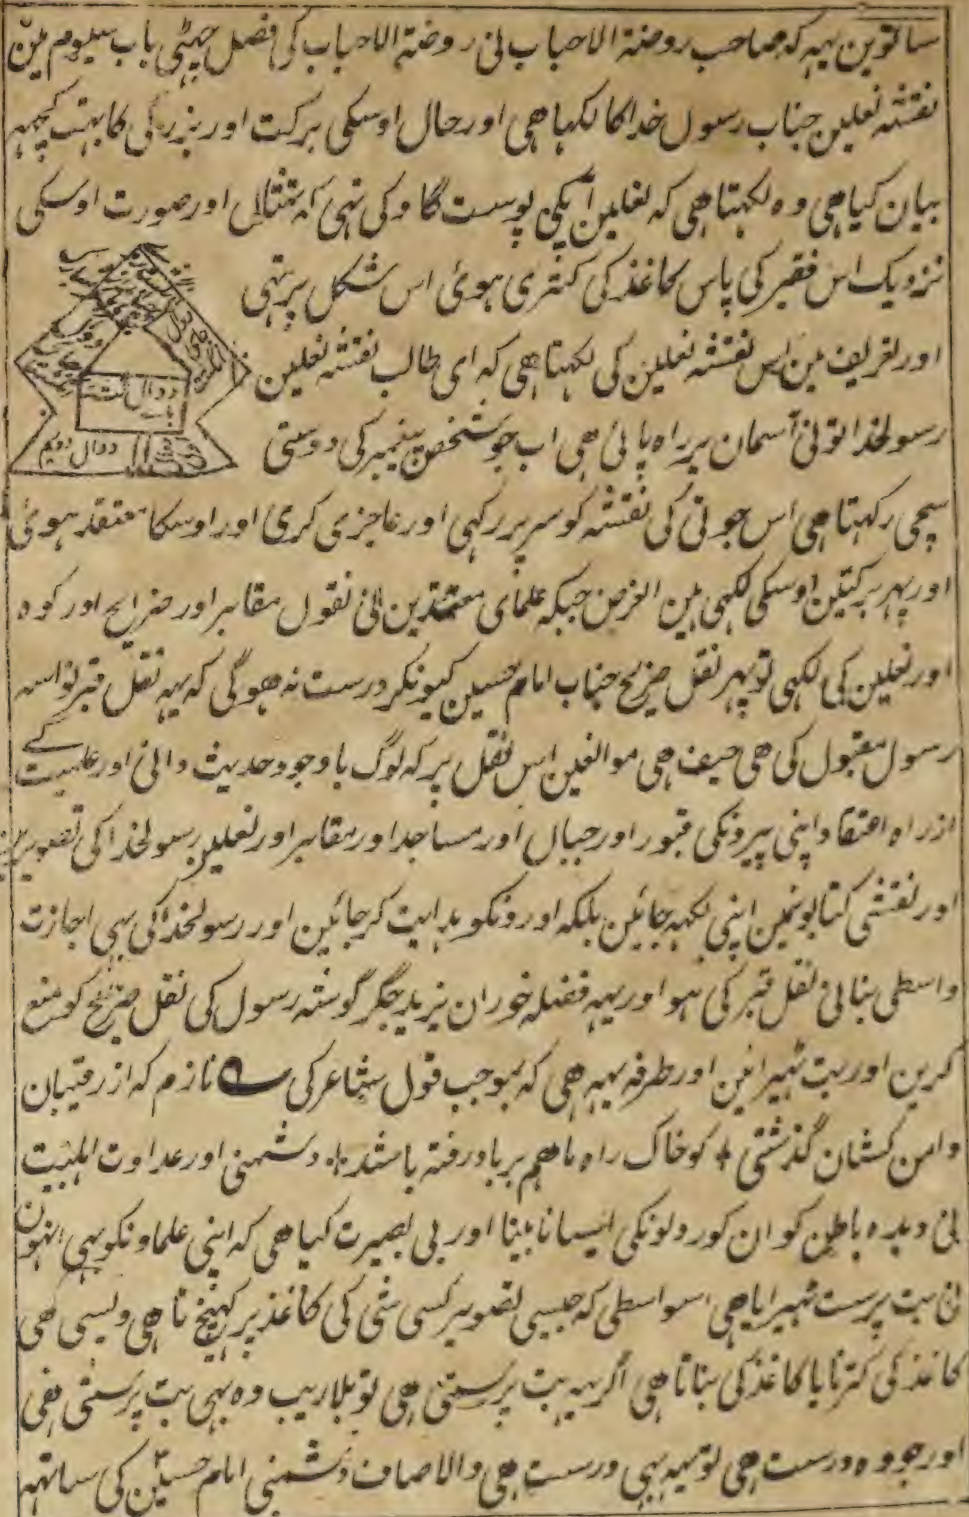 ساتوین یہہ کہ صاحب روضۃ الاحباب نی روضۃ الاحباب کی فصل چہٹی باب سیوم مین
نقشہ نعلین جناب رسول خدا کا لکہا ھی اور حال اوسکی برکت اور بزرگی کا بہت کچہہ
بیان کیا ھی وہ لکہتا ھی کہ نعلین آپکی پوست گاو کی تہی کہ تمثال اور صورت اوسکی
نزدیک اس فقیر کی پاس کاغذ کی کتری ہوئ اس شکل پر تہی
اور تعریف مین اس نقشہ نعلین کی لکہتا ھی کہ ای طالب نقشہ نعلین
رسولخدا تونی آسمان پر راہ پائی ھی اب جو شخص پیغمبر کی دوستی
دوال
دوال دویم
سچی رکہتا ھی اس جوتی کی نقشہ کو سر پر رکہی اور عاجزی کری اور اوسکا معتقد ہوئ
اور پہر برکتین اوسکی لکہی ہین الغرض جبکہ علمای معتمدین نی نقول مقابر اور ضرایح اور کوہ
اور نعلین کی لکہی تو پہر نقل ضریح جناب امام حسین کیونکر درست نہ ھوگی کہ یہہ نقل قبر نواسہ
رسول مقبول کی ھی حیف ھی موالغین اس نقل پر کہ لوگ باوجود حدیث دانی اور علمیت کے
از راہ اعتقاد اپنی پیرونکی قبور اور جبال اور مساجد اور مقابر اور نعلین رسولخدا کی تصویرین
اور نقشی کتابونمین اپنی لکہہ جائین بلکہ اورونکو ہدایت کر جائین اور رسولخدا کی بہی اجازت
واسطی بنانی نقل قبر کی ہو اور یہہ فضلہ خوران یزید جگر گوشہ رسول کی نقل ضریح کو منع
کرین اور بت ٹہیرائین اور طرفہ یہہ ھی کہ بموجب قول شاعر کی نازم کہ از رقیبان
دامن کشان گذشتی کو خاک راہ ما ھم برباد رفتہ باشد دشمنی اور عداوت اہلبیت
نی دیدہ باطن کو ان کوردلونکی ایسا نابینا اور بی بصیرت کیا ھی کہ اپنی علماونکو بہی انہون
نی بت پرست ٹہیرایا ھی اسواسطی کہ جیسی تصویر کسی شی کی کاغذ پر کہینچنا ھی ویسی ھی
کاغذ کی کترنا یا کاغذ کی بنانا ھی اگر یہہ بت پرستی ھی تو بلاریب وہ بہی بت پرستی تھی
اور جو وہ درست ھی تو یہہ بہی درست ھی والا صاف دشمنی امام حسین کی ساتہہ